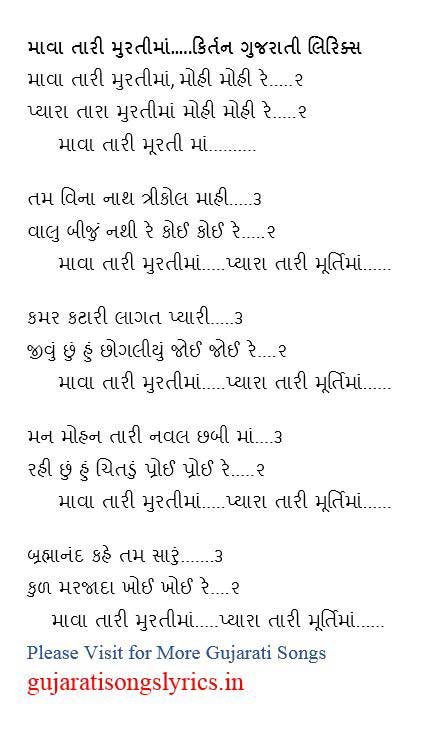 માવા તારી મુરતીમાં.....કિર્તન ગુજરાતી લિરિક્સ
માવા તારી મુરતીમાં, મોહી મોહી રે.....૨
પ્યારા તારા મુરતીમાં મોહી મોહી રે.....૨
માવા તારી મૂરતી માં..........
તમ વિના નાથ ત્રીકોલ માહી.....૩
વાલુ બીજું નથી રે કોઈ કોઈ રે.....૨
માવા તારી મુરતીમાં.....પ્યારા તારી મૂર્તિમાં......
કમર કટારી લાગત પ્યારી.....૩
જીવું છું હું છોગલીયું જોઈ જોઈ રે....૨
માવા તારી મુરતીમાં.....પ્યારા તારી મૂર્તિમાં......
મન મોહન તારી નવલ છબી માં....૩
રહી છું હું ચિતડું પ્રોઈ પ્રોઈ રે.....૨
માવા તારી મુરતીમાં.....પ્યારા તારી મૂર્તિમાં......
બ્રહ્માનંદ કહે તમ સારું.......૩
કુળ મરજાદા ખોઈ ખોઈ રે....૨
માવા તારી મુરતીમાં.....પ્યારા તારી મૂર્તિમાં......
Please Visit for More Gujarati Songs
gujaratisongslyrics.in